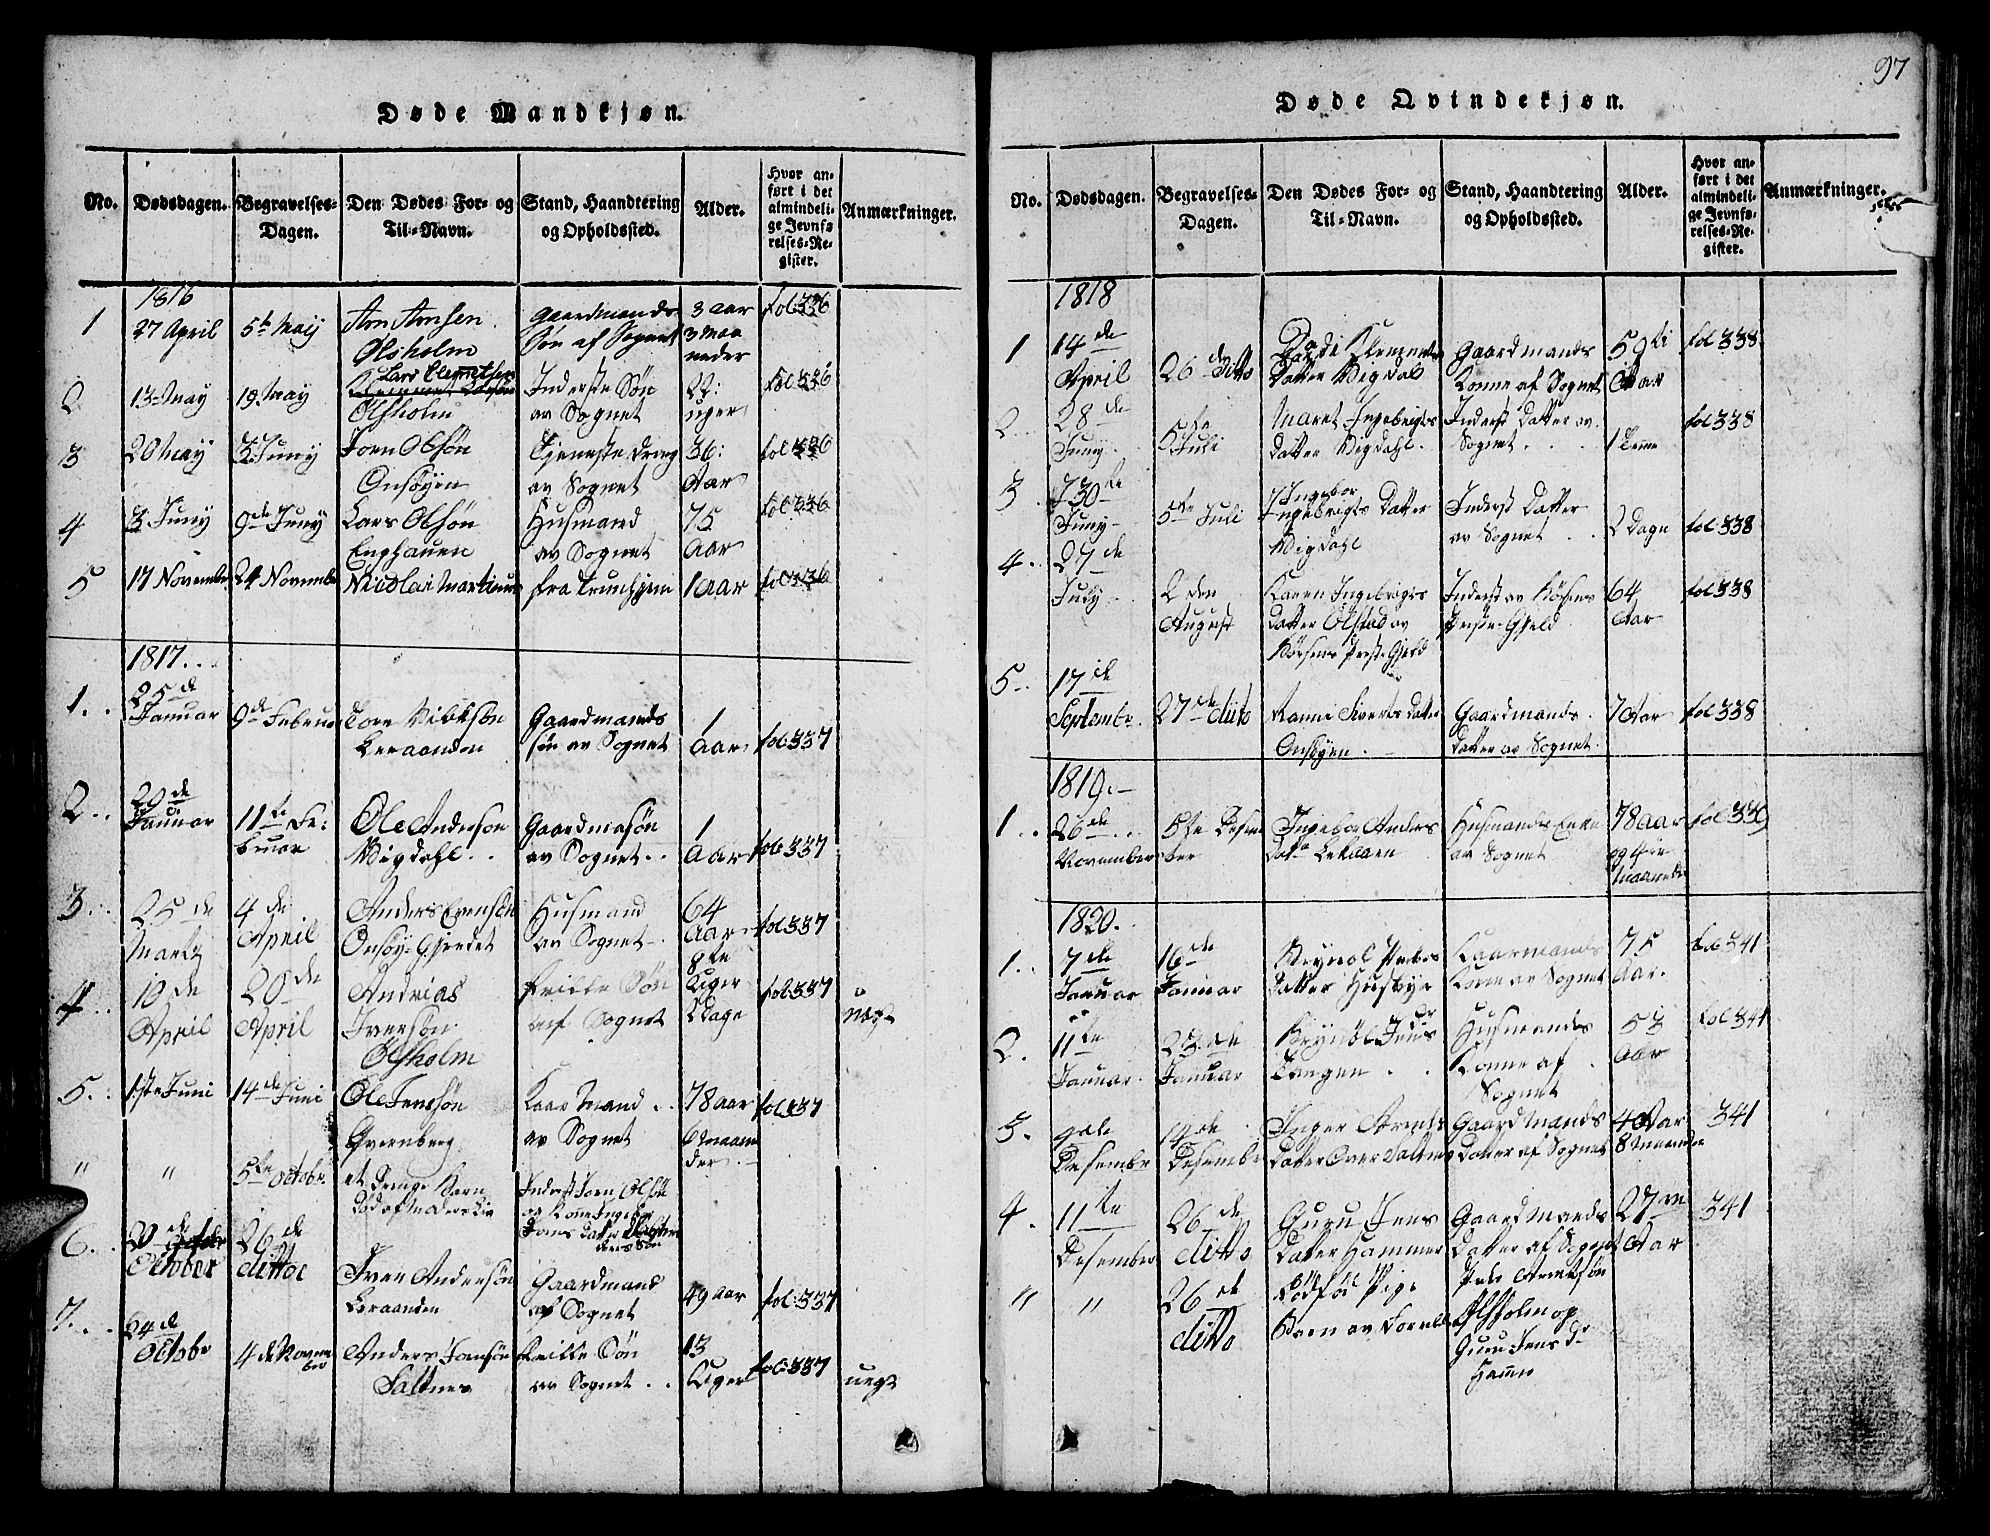 Døde Mandkjøn.
No.
Dødsdagen.
Begravelses-
Dagen.
Den Dødes For- og
Til-Navn.
Stand, Haandtering
og Opholdssted.
Alder.
Hvor an-
ført i det
almindeli-
ge Jevnfø-
relses-Re-
gister.
Anmærkninger.
1816
1
27 April
5te Maij
Arn Arnsen
Olsholm
gaardmands
Søn af Sognet
3 aar
3 Maa
neder
fol 336
2
13 May
19 May
Lars Clemetsen
Ølsholm
Inderste Søn
av Sognet
22:
uger
fol 336
3
20 May
3 Juny
Jorn Olsøn
Onsøyen
Tjeneste dreng
av Sognet
36:
Aar
fol 336
4
3 Juny
9de Juny
Lars Olsøn
Enghauen
Husmand
av Sognet
75
Aar
fol 336
5
17 Novembr
24 Novembr
Nicolai Martinus
fra Trunhjem
1 aar
fol 336
1817..
1..
25de
Januar
9de Februar
Tore
Leraanden
Gaardmands
søn av Sognet
1
Aar
fol 337
2..
29de
Januar
11te Fe:
bruar
Ole Anderson
Vigdahl..
Gaardmasøn
av Sognet..
1
Aar
fol 337
3..
25de
Martz
4de
April
Anders Evensøn
Onsøy-Gjerdet
Husmand
av Sognet
64
Aar
fol 337
4..
10de
April
20de
April
Andrias
Iversøn
Ølsholm
Søn
af Sognet
8te
Uger
2 Dage
fol 337
uegt
5..
1ste Juni
14de Juni
Ole Jenssøn
Gvernberg
Kaar Mand..
av Sognet
78 aar
6 maane
der
fol 337
"
"
5te Octobr
et Drenge Barn
Død af Moders Liv
Inderst Jorn Olsøn
og Kone Ingebor
Jorns Datter
deres Søn
6..
October
26de
dittoe
Iver Andersøn
Leraanden
Gaardmans
af Sognet
49 aar
fol 337
7...
24de
Octobr
4de Novem
ber
Anders Jonsøn
Saltnes
Søn
av Sognet..
13
Uger
fol 337
uegt
97
Døde Qvindekjøn.
No.
Dødsdagen.
Begravelses-
Dagen.
Den Dødes For- og
Til-Navn.
Stand, Haandtering
og Opholdssted.
Alder.
Hvor an-
ført i det
almindeli-
ge Jevnfø-
relses-Re-
gister.
Anmærkninger.
1818
1
14de
April
26de ditto
Datter Vigdal
Gaardmands
Konne af Sognet
59ti
Aar
fol 338
2..
28de
Juny
5te
Juli
Maret Ingebrigts
Datter Vigdahl.
Inderst Datter av
Sognet...
1 Time
fol 338
3.
30te
Juny
5te Juli
Ingebor
Ingebrigts Datter
Vigdahl
Inderst Datter
av Sognet..
2 Dage
fol 338
4..
27de
July
2den
August
Karen Ingebrigts
Datter Ølstad av
Børsens Preste-Gjeld
Inderst av Børsens
Preste-Gjeld
64
Aar
fol 338
5..
17de
Septembr.
27de ditto
Ranni Siverts Datter
Onsøyen.
Gaardmands.
Datter av Sognet.
7 Aar
fol 338
1819.-
1..
26de..
November
5te Desem
ber
Ingebor Anders
Datter
Husmands Enke
av Sognet
78 aar
og 4ir
Maaneder
fol 339
1820.
1..
7de
Januar
16de
Januar
Peders
Datter Husbye
Kaarmands
Kone av Sognet
75
Aar.
fol 341
2.
11te
Januar.
23de
Januar
Jens Dr
Tangen..
Husmandes
Konne af
Sognet
53
Aar
fol 341
3.
Desembr
14de
Desembr
Inger Arents
Datter Over Saltnes
Gaardmands
Datter af Sognet
4 Aar
8 Maaneder
341
4.
11te
Desember
26de
ditto
Guru Jens
Datter Hammer
Gaardmands
Datter af Sognet
27ve
Aar
341
"
"
26de
ditto
Dødfød Pige
Barn av
Peder Arentsøn
Ølsholm og
Guru Jens Dr
Hamer